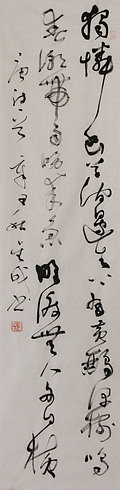 獨憐幽草澗邊生上有黃鸝深樹鳴
春潮帶雨晚來急野渡無人舟自橫
唐詩